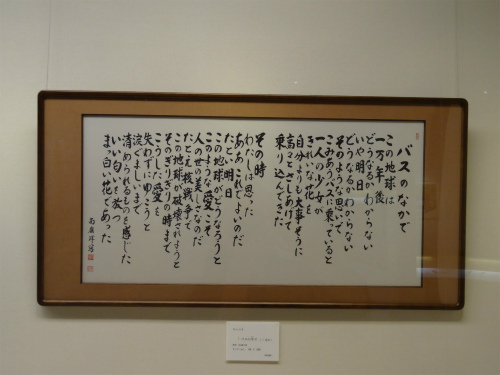 バスのなかで
この地球は
一万年後
どうなるかわからない
いや明日
どうなるかわからない
そのような思いで
こみあうバスに乗っていると
一人の少女が
きれいな花を
自分よりも大事そうに
高々とさしあげて
乗り込んできた
その時
わたしは思った
ああこれでよいのだ
たとい明日
この地球がどうなろうと
このような愛こそ
人の世の美しさなのだ
たとえ核戦争で
この地球が破壊されようと
そのぎりぎりの時まで
こうした愛を
失わずにゆこうと
涙ぐましいまで
清められるものを感じた
いい匂いを放つ
まっ白い花であった